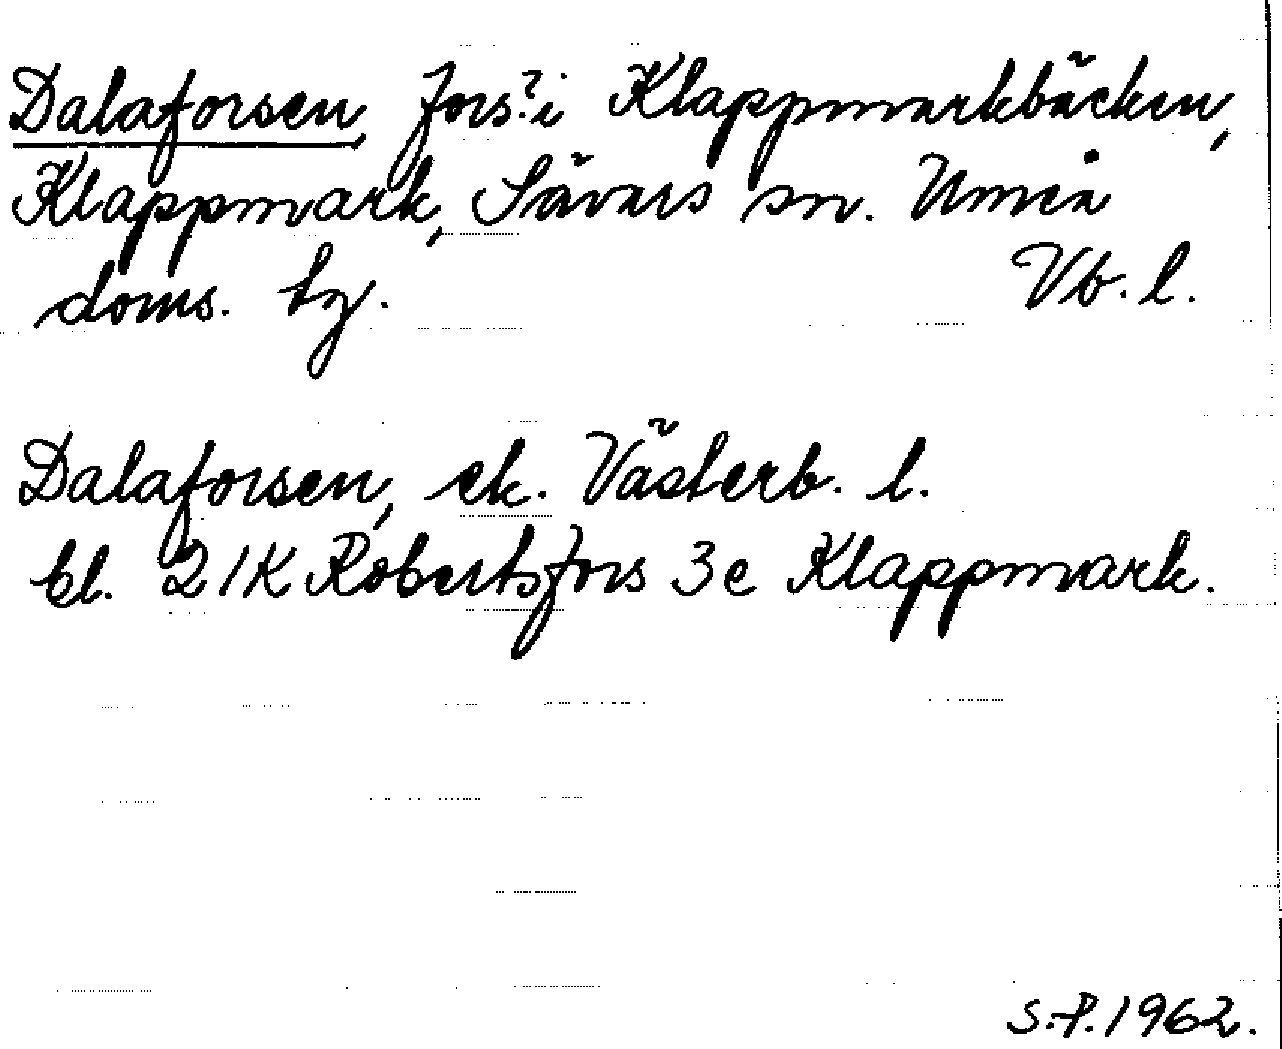 Dalaforsen, fors? i Klappmarkbäcken,
Klappmark, Sävars sn. Umeå
doms. tg. Vb. l.
Dalaforsen, ek. Västerb. l.
bl. 21K Robertsfors 3e Klappmark.
S.P. 1962.